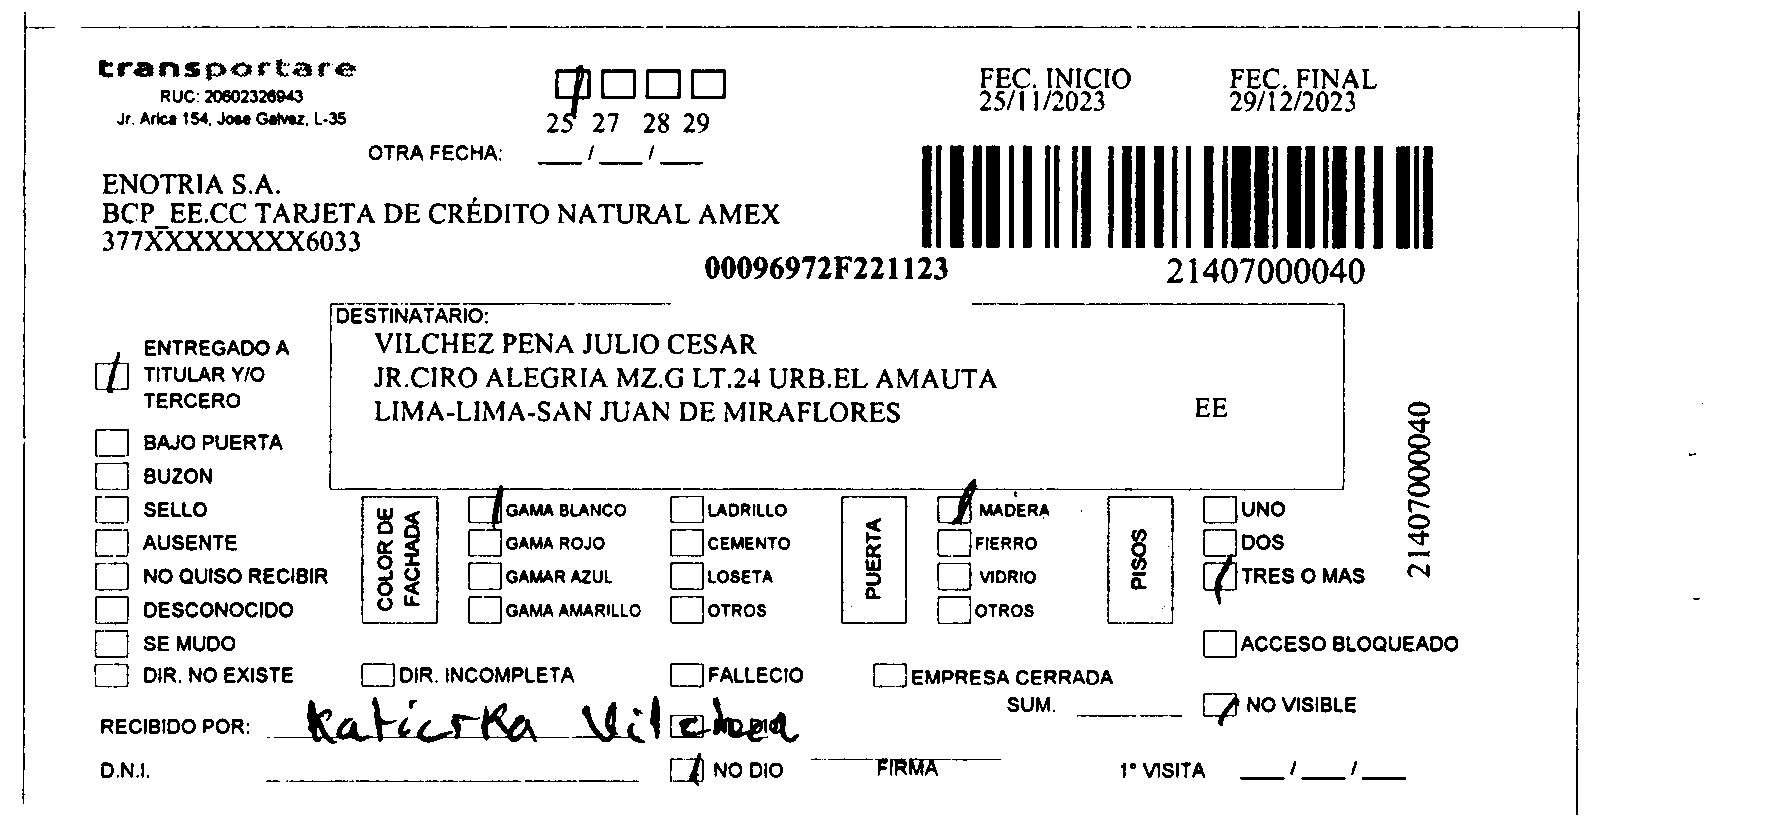 transportare
RUC: 20602326943
Jr. Arica 154, Jose Galvez, L-35
25 27 28 29
OTRA FECHA: ___/___/___
FEC. INICIO
25/11/2023
FEC. FINAL
29/12/2023
ENOTRIA S.A.
BCP_EE.CC TARJETA DE CRÉDITO NATURAL AMEX
377XXXXXXXX6033
00096972F221123
21407000040
DESTINATARIO:
VILCHEZ PENA JULIO CESAR
JR.CIRO ALEGRIA MZ.G LT.24 URB.EL AMAUTA
LIMA-LIMA-SAN JUAN DE MIRAFLORES
EE
21407000040
ENTREGADO A
TITULAR Y/O
TERCERO
BAJO PUERTA
BUZON
SELLO
AUSENTE
NO QUISO RECIBIR
DESCONOCIDO
SE MUDO
DIR. NO EXISTE
COLOR DE
FACHADA
GAMA BLANCO
GAMA ROJO
GAMAR AZUL
GAMA AMARILLO
LADRILLO
CEMENTO
LOSETA
OTROS
PUERTA
MADERA
FIERRO
VIDRIO
OTROS
PISOS
UNO
DOS
TRES O MAS
ACCESO BLOQUEADO
DIR. INCOMPLETA
FALLECIO
EMPRESA CERRADA
SUM. ______
NO VISIBLE
RECIBIDO POR:
D.N.I.
NO DIO
FIRMA
1° VISITA ___/___/___